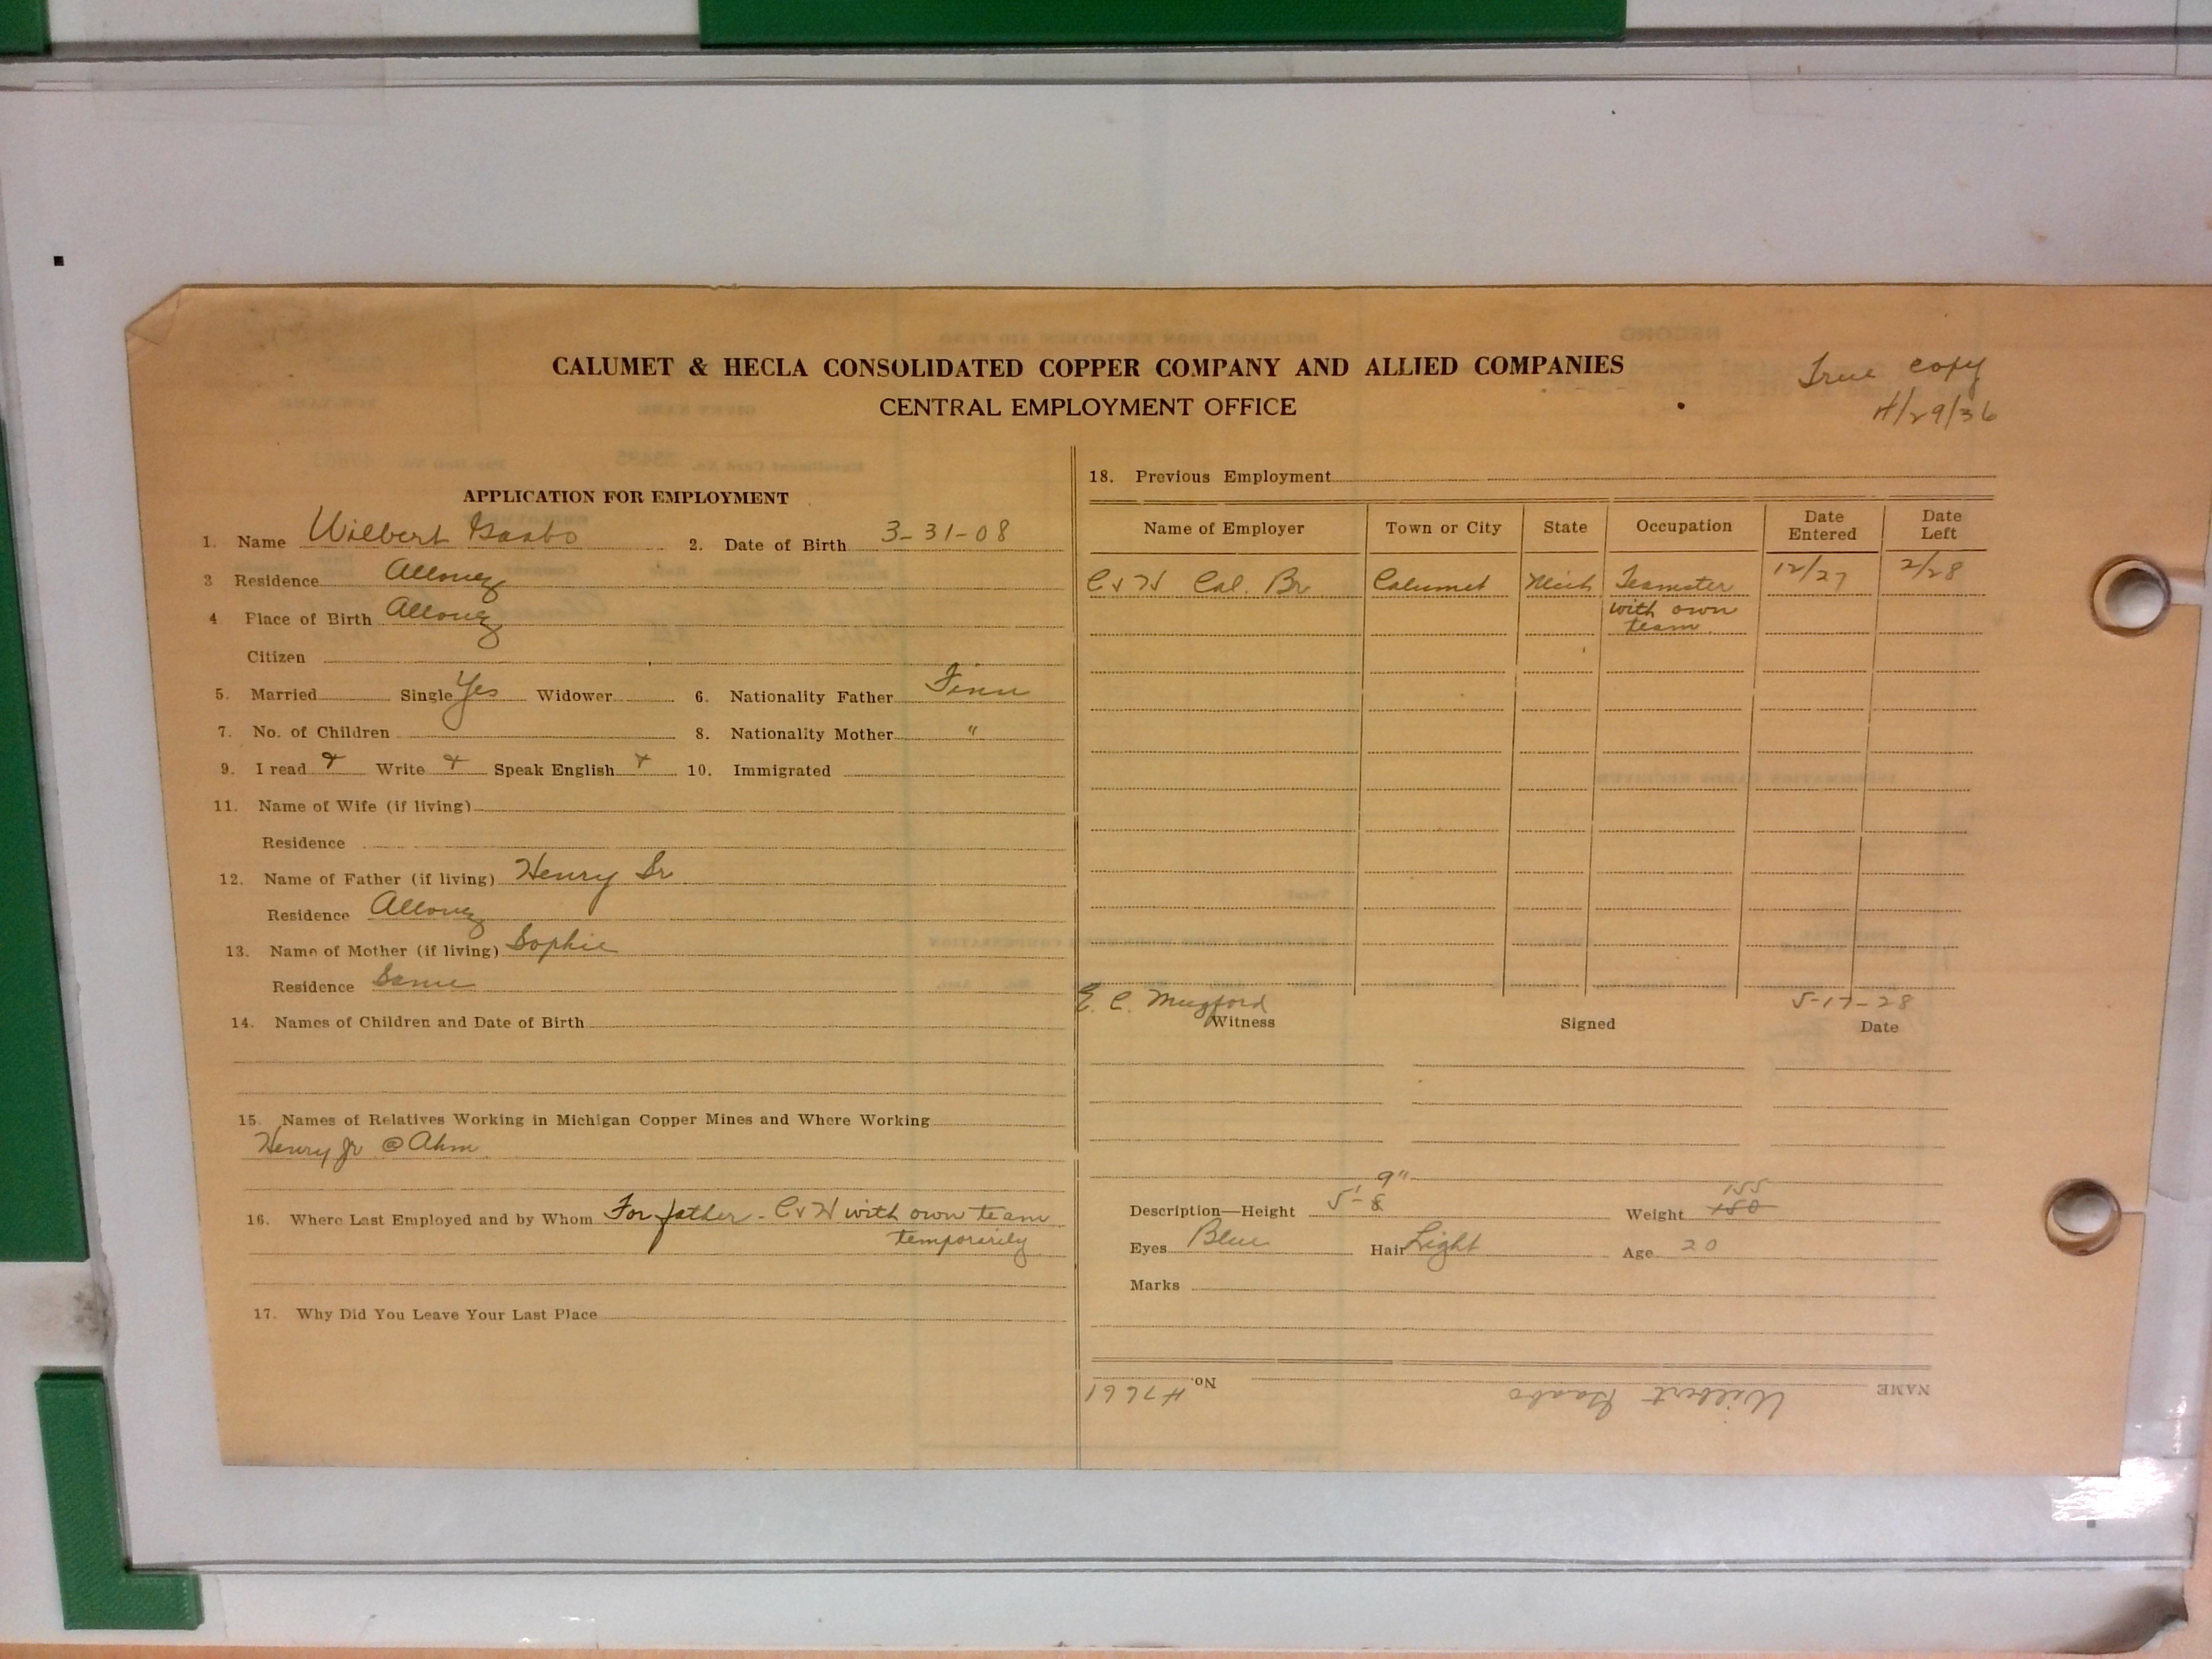 CALUMET & HECLA CONSOLIDATED COPPER COMPANY AND ALLIED COMPANIES
CENTRAL EMPLOYMENT OFFICE
True copy
4/29/36
APPLICATION FOR EMPLOYMENT
1. Name Wilbert Gaabo 2. Date of Birth 3-31-08
3 Residence Allouez
4 Place of Birth Allouez
Citizen
5. Married Single Yes Widower 6. Nationality Father Finn
7. No. of Children 8. Nationality Mother "
9. I read + Write + Speak English + 10. Immigrated
11. Name of Wife (if living)
Residence
12. Name of Father (if living) Henry Sr
Residence Allouez
13. Name of Mother (if living) Sophie
Residence Same
14. Names of Children and Date of Birth
15. Names of Relatives Working in Michigan Copper Mines and Where Working
Henry Jr @ Ahm
16. Where Last Employed and by Whom For father - C & H with own team
temporarily
17. Why Did You Leave Your Last Place
18. Previous Employment
Name of Employer Town or City State Occupation Date Entered Date Left
C & H Cal. Br Calumet Mich Teamster 12/27 2/28
with own
team
E. C. Mugford 5-17-28
Witness Signed Date
9"
155
Description—Height 5'-8 Weight 150
Eyes Blue Hair Light Age 20
Marks
NAME Wilbert Gaabo No. 47661